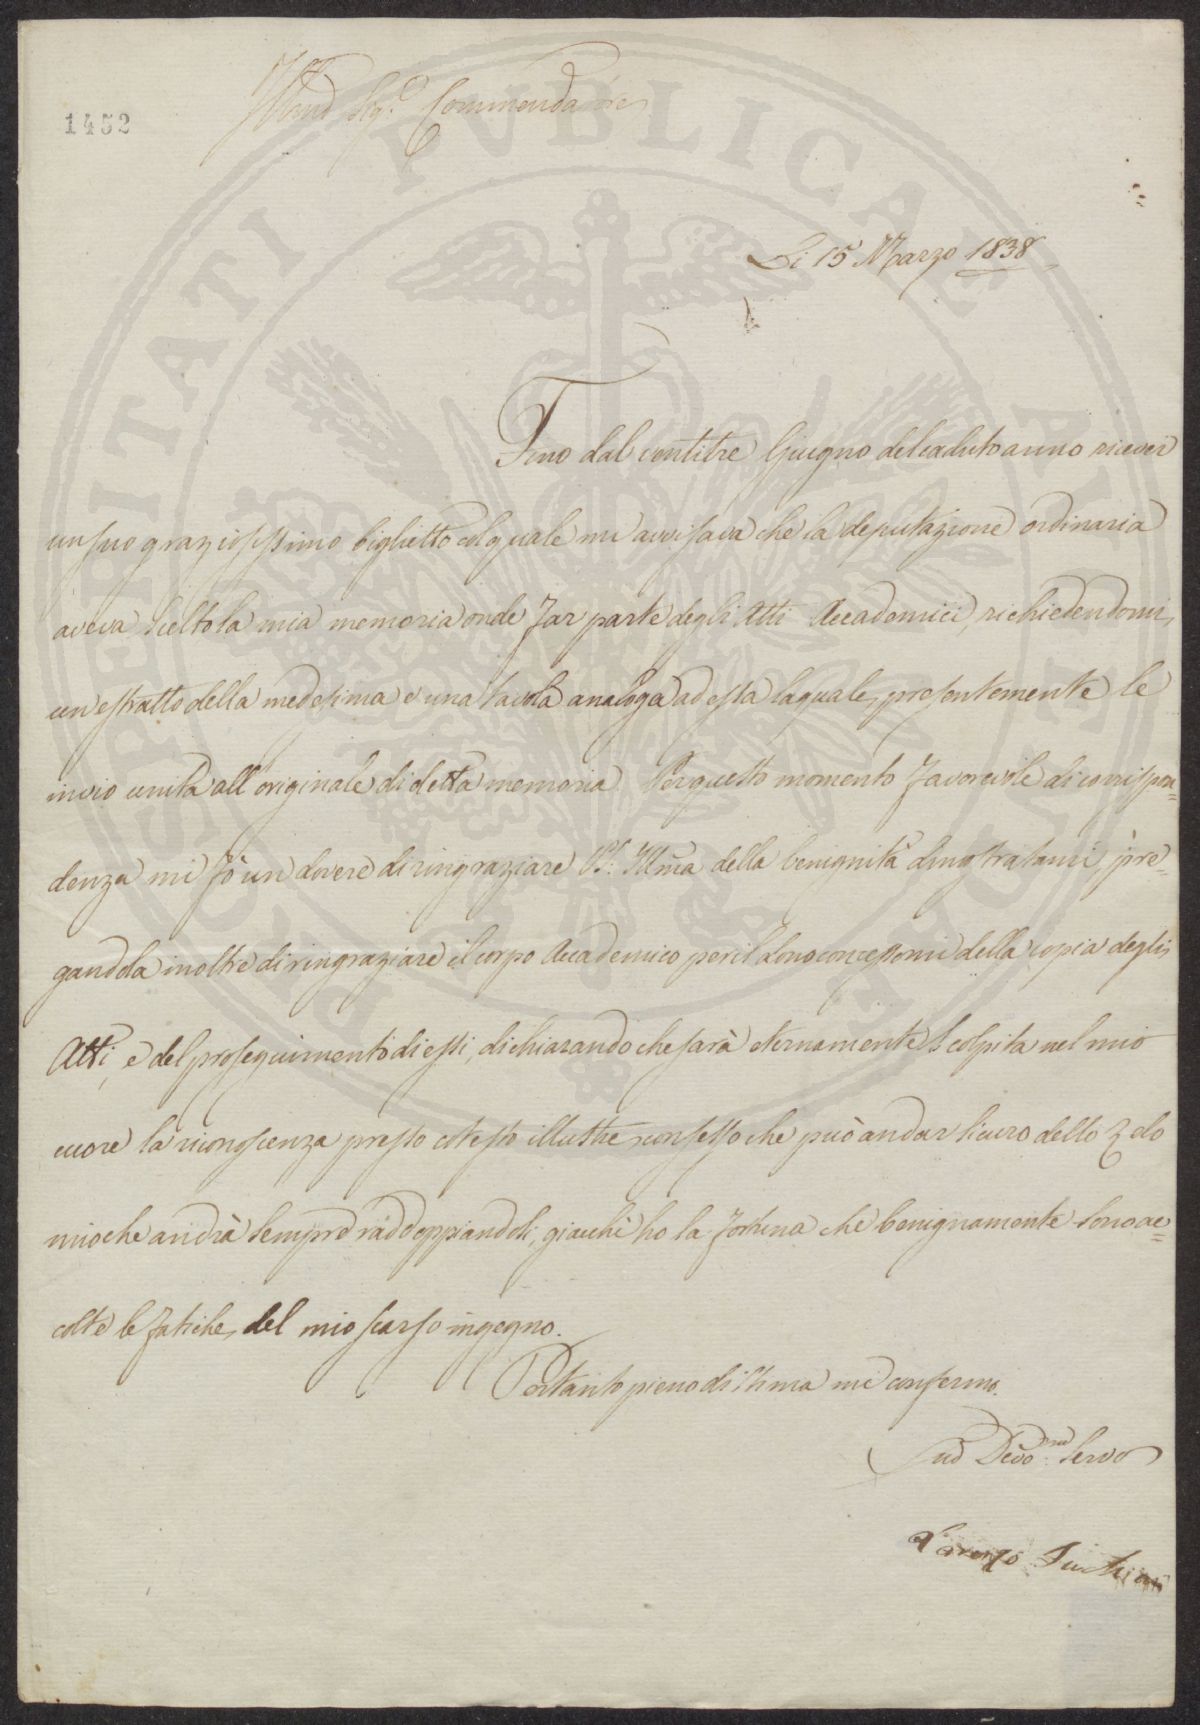 1452
Illmo Sigr. Commendatore
Li 15 Marzo 1838
Fino dal ventitre Giugno del caduto anno ricevei
un suo graziosissimo biglietto col quale mi avvisava che la deputazione ordinaria
aveva scelto la mia memoria onde far parte degli Atti Accademici, richiedendomi
un estratto della medesima e una tavola analoga ad essa la quale presentemente le
invio unita all originale di detta memoria. Per questo momento favorevole di corrispon=
denza mi fò un dovere di ringraziare V.S. Illma della benignità dimostratami, pre=
gandola inoltre di ringraziare il corpo Accademico per il dono concessomi della copia degli
Atti, e del proseguimento di essi, dichiarando che sarà eternamente scolpita nel mio
cuore la riconoscenza presso cotesto illustre consesso che può andar sicuro dello zelo
mio che andrà sempre raddoppiandosi, giacchè ho la fortuna che benignamente sono ac=
colte le fatiche del mio scarso ingegno.
Pertanto pieno di stima mi confermo.
Suo Devo.mo Servo
Lorenzo
PROSPERITATI PVBLICAE